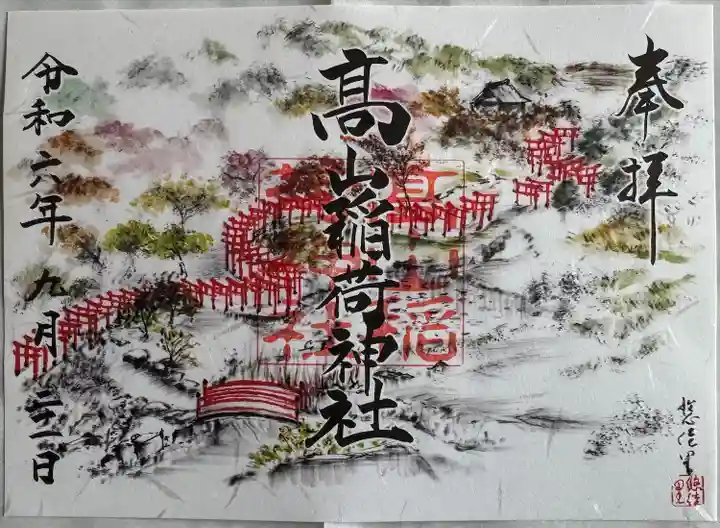 奉拝
髙山稲荷神社
令和六年九月二十一日